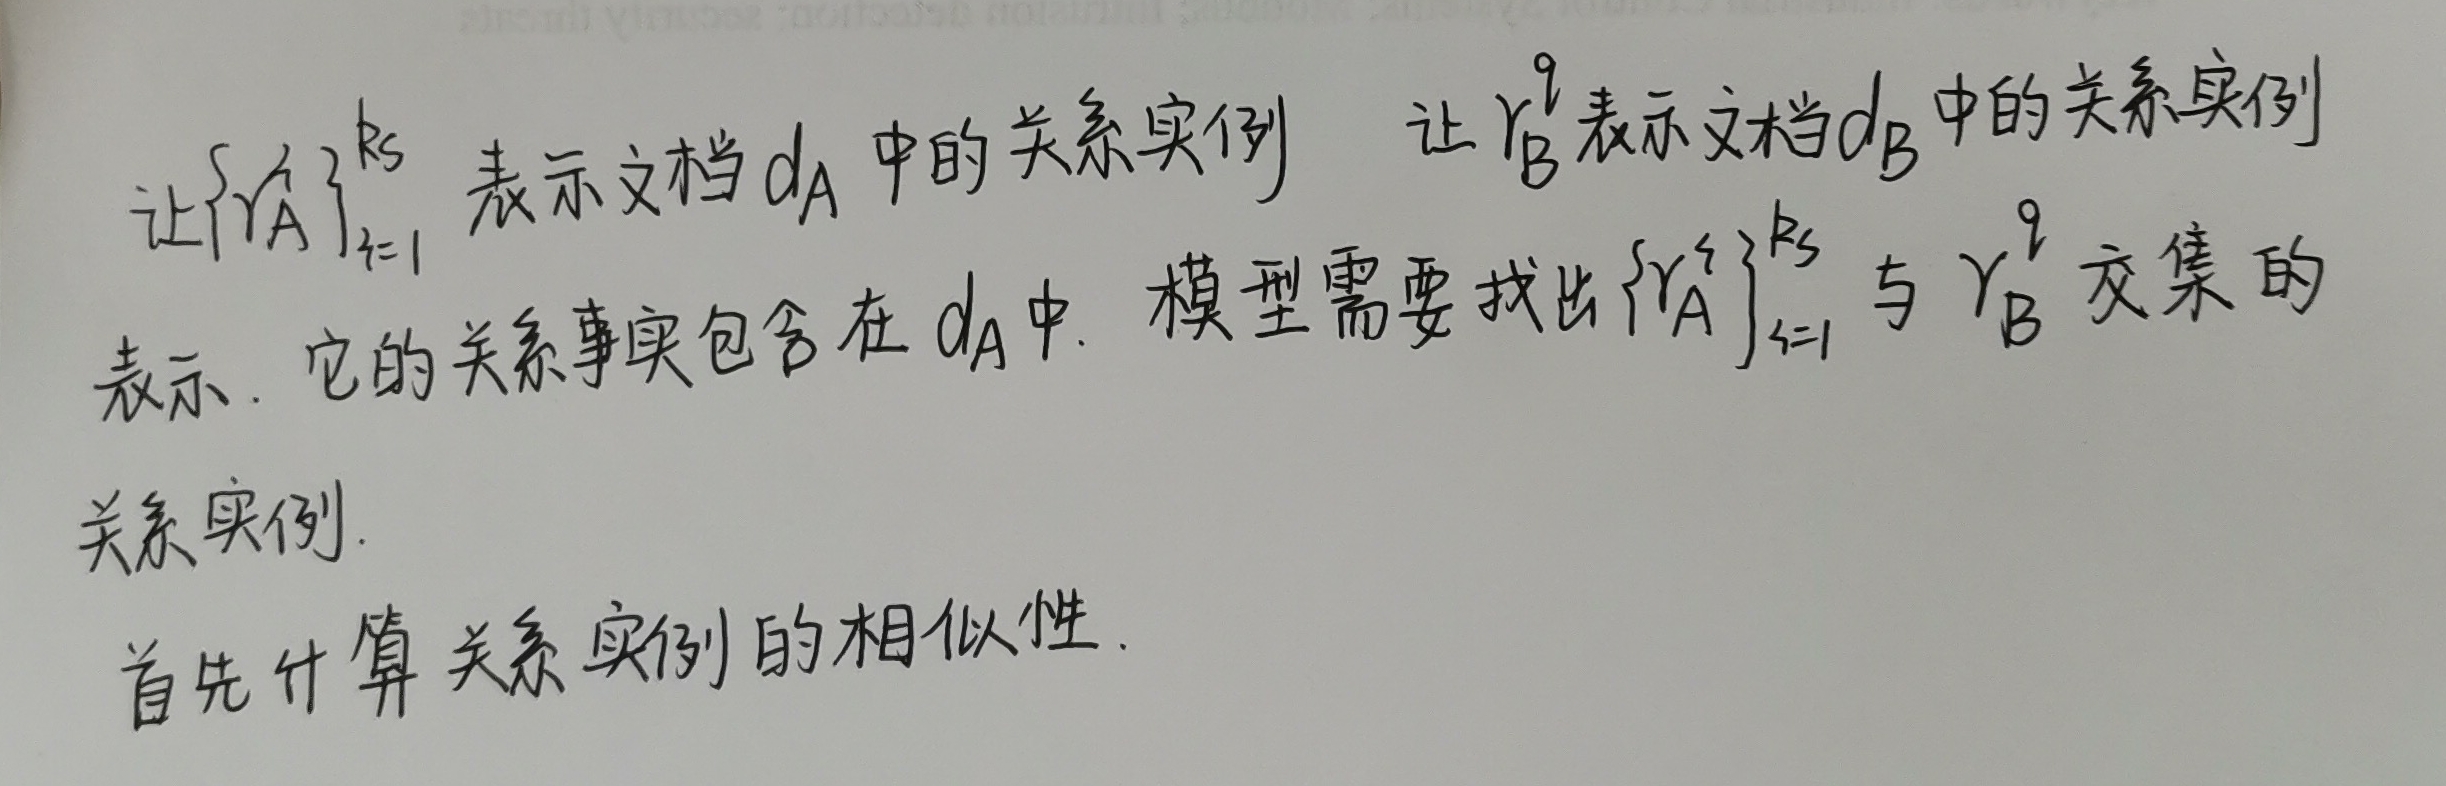 让{r_A^i}_{i=1}^{ks} 表示文档 d_A 中的关系实例 让 r_B^q 表示文档 d_B 中的关系实例
表示. 它的关系事实包含在 d_A 中. 模型需要找出 {r_A^i}_{i=1}^{ks} 与 r_B^q 交集的
关系实例.
首先计算关系实例的相似性.